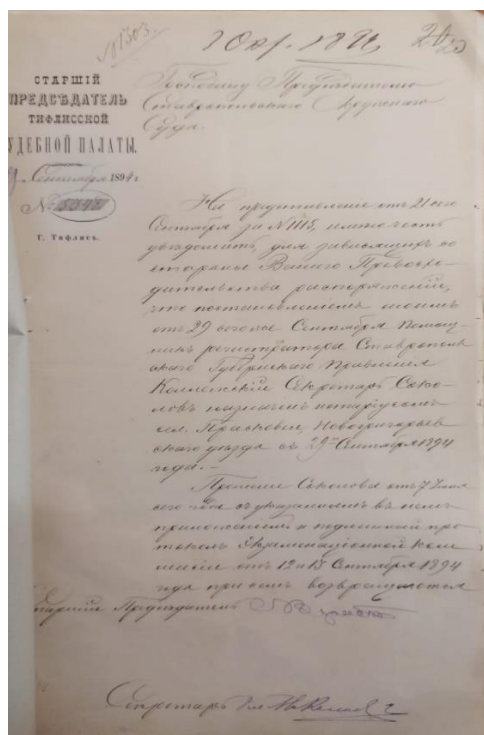 N1303.
2 Окт. 1894
СТАРШІЙ
ПРЕДСѢДАТЕЛЬ
ТИФЛИССКОЙ
УДЕБНОЙ ПАЛАТЫ.
Сентября 1894 г.
№
Г. Тифлисъ.
Господину Предсѣдателю
Ставропольскаго Окружнаго
Суда.
На представленіе отъ 21 сего
Сентября за № 1115, имѣю честь
увѣдомить, для зависящихъ со
стороны Вашего Превосхо-
дительства распоряженій,
что постановленіемъ моимъ
отъ 29 сего же Сентября Помощ-
никъ регистратора Ставрополь
скаго Губернскаго Правленія
Коллежскій Секретарь Соко-
ловъ назначенъ нотаріусомъ
сел. Прасковеи, Новогригорьев
скаго уѣзда съ 29го Сентября 1894
года.-
Прошеніе Соколова отъ 7 Іюля
сего года съ указанными въ немъ
приложеніями и подлинный про-
токолъ Экзаменаціонной Ком
миссіи отъ 12 и 15 Сентября 1894
года при семъ возвращаются
Старшій Предсѣдатель
Секретарь